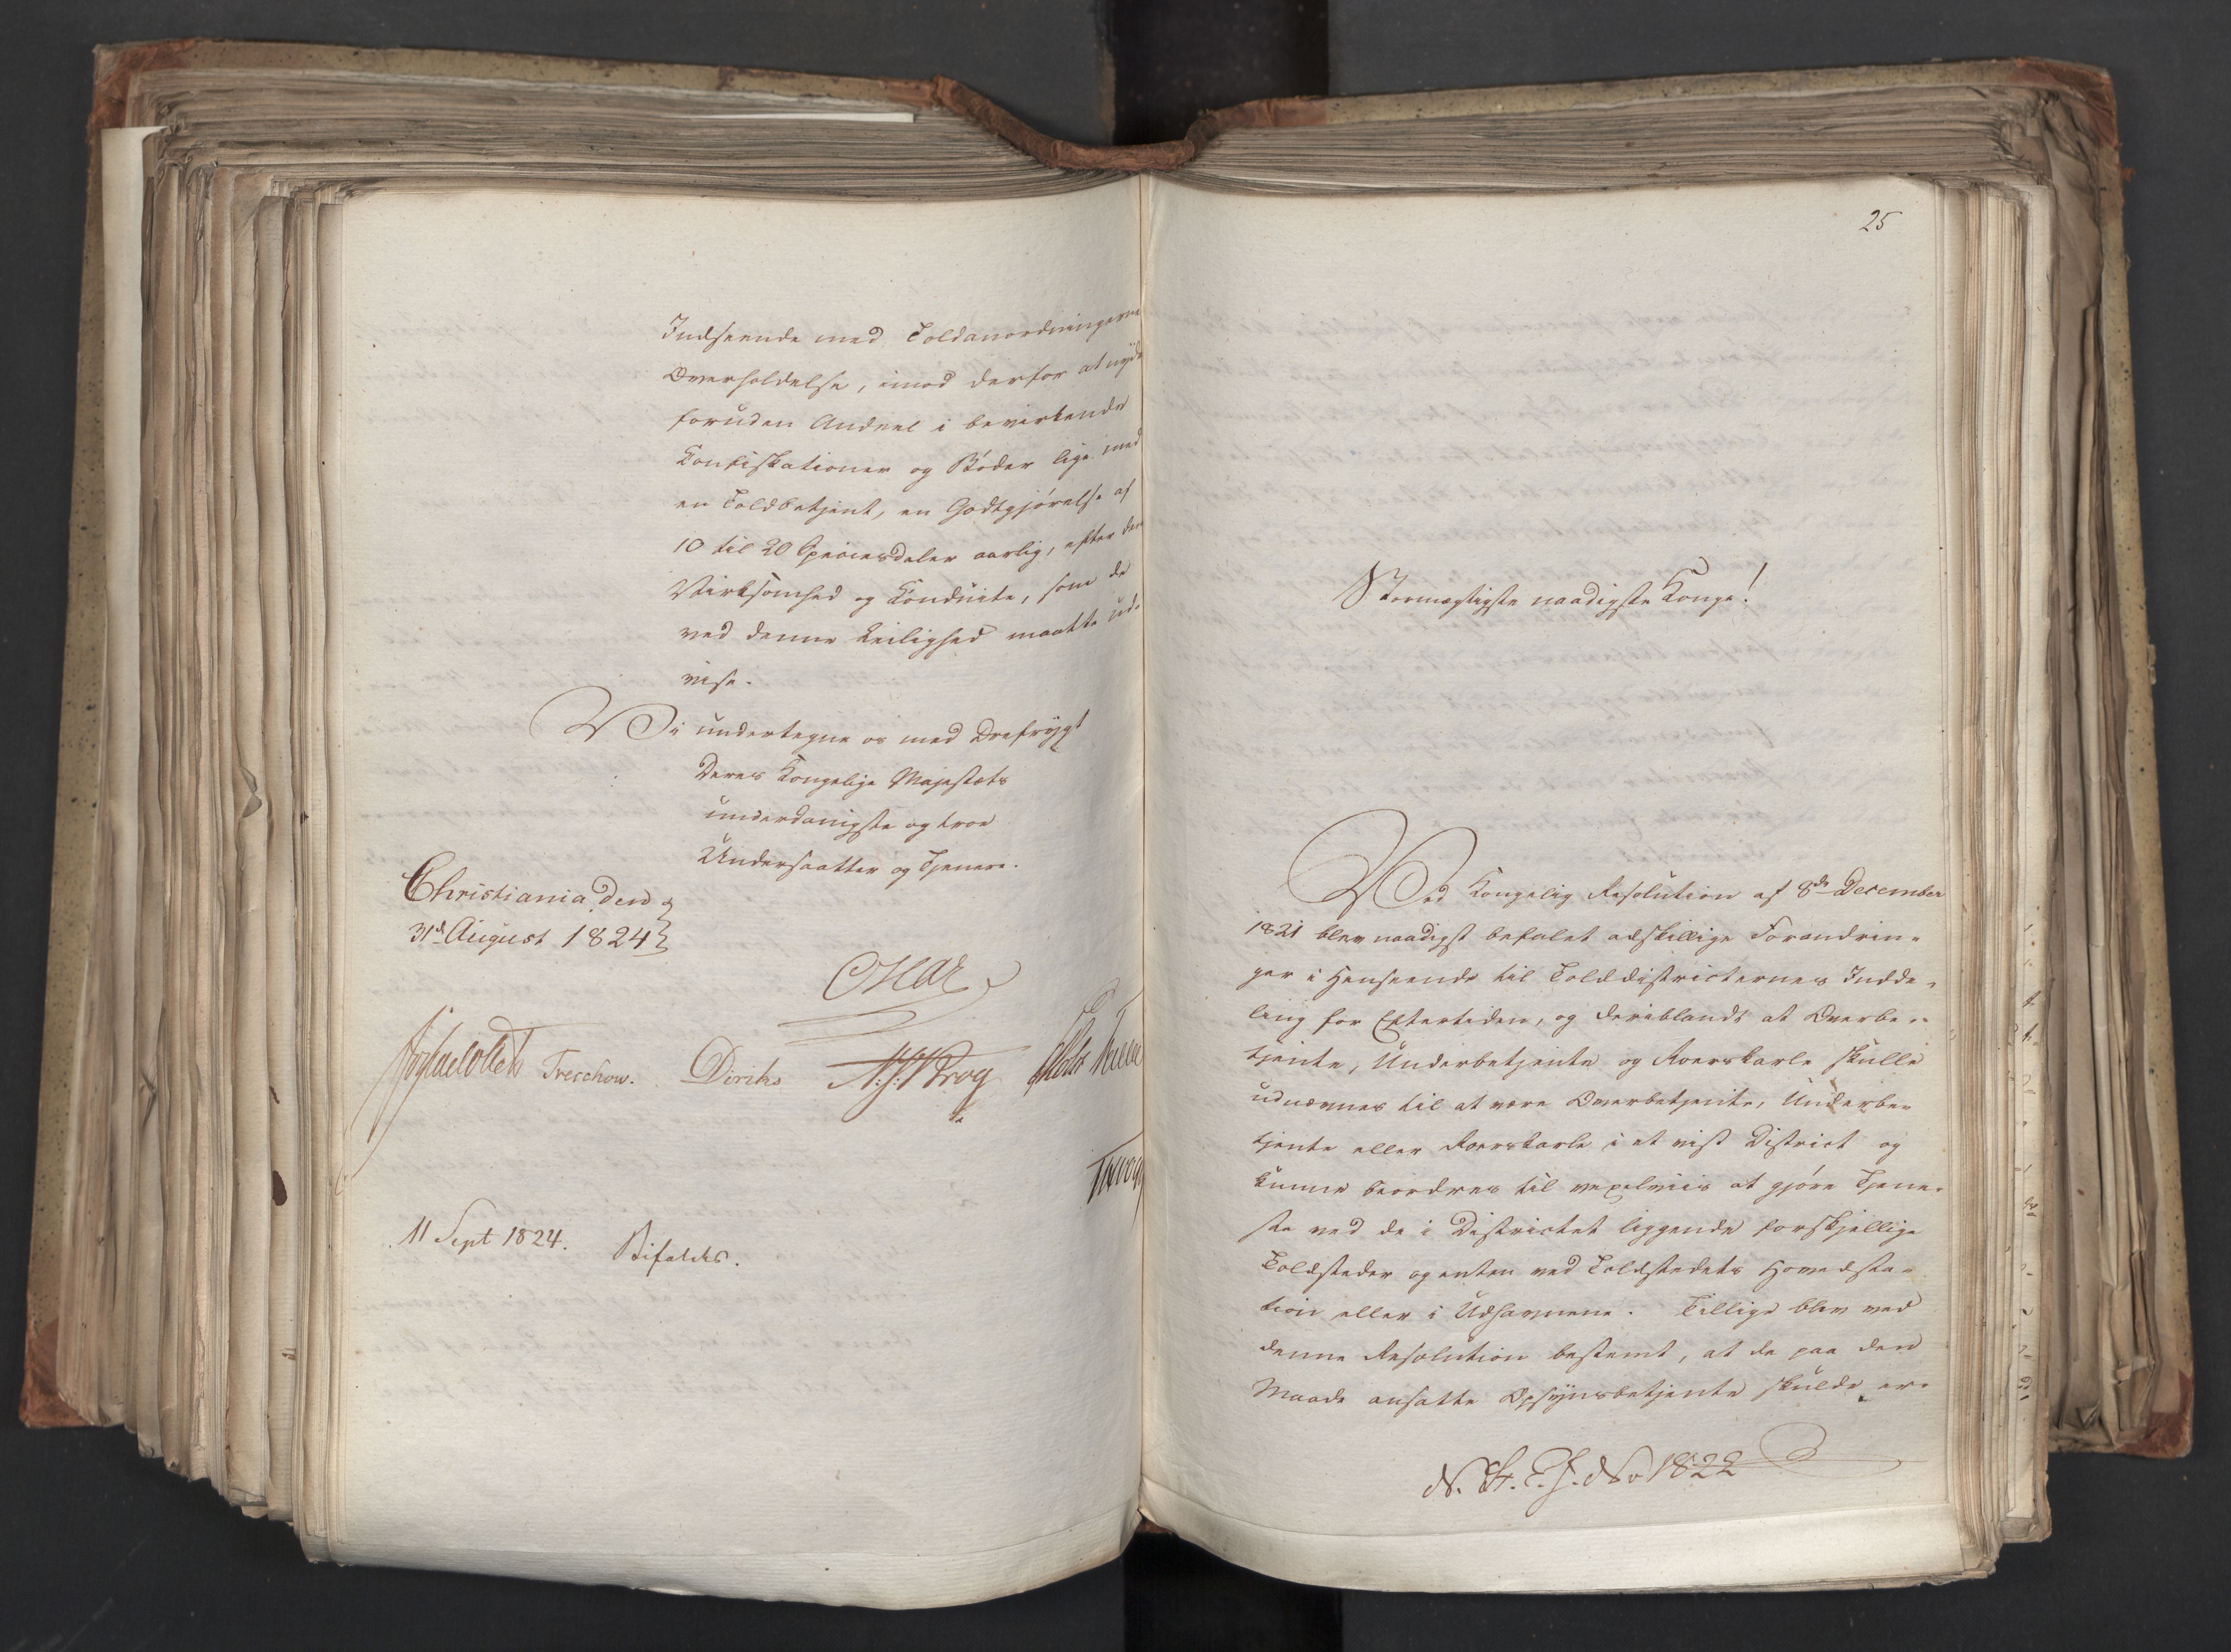 Indseende med Toldanordningernes
Overholdelse, imod derfor at nyde
foruden Andeel i bevirkende
Konfiskationer og Bøder lige med
en Toldbetjent, en Godtgjørelse af
10 til 20 Speciesdaler aarlig, efter den
Virksomhed og Conduite, som de
ved denne Leilighed maatte ud-
vise.
Vi undertegne os med Ærefrygt
Deres Kongelige Majestæts
underdanigste og troe
Undersaatter og Tjenere.
Christiania den
31d August 1824
Treschow. Diriks
11 Sept 1824. Bifaldes.
25
Stormægtigste naadigste Konge!
Ved Kongelig Resolution af 8de December
1821 blev naadigst befalet adskillige Forandrin-
ger i Henseende til Tolddistricternes Indde-
ling for Eftertiden, og deriblandt at Overbe-
tjente, Underbetjente og Roerskarle skulle
udnævnes til at være Overbetjente, Underbe-
tjente eller Roerskarle i et vist District og
kunne beordres til vexelviis at gjøre Tjene-
ste ved de i Districtet liggende forskjellige
Toldsteder og enten ved Toldstedets Hovedsta-
tion eller i Udhavnene. Tillige blev ved
denne Resolution bestemt, at de paa den
Maade ansatte Opsynsbetjente skulde er-
1822